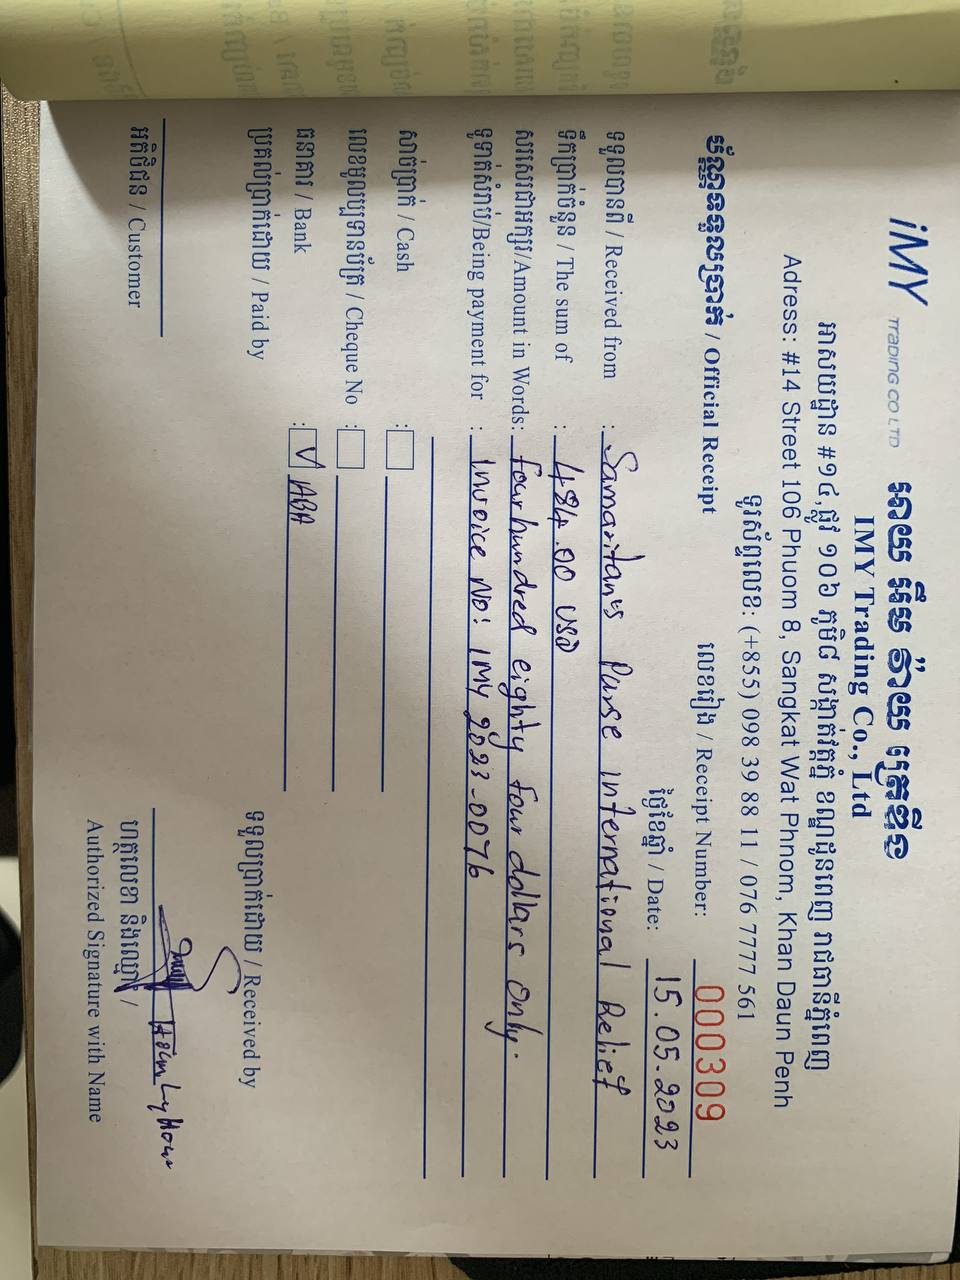 iMY TRADING CO LTD
អាយ អឹម ម៉ាយ ត្រេឌីង
IMY Trading Co., Ltd
អាសយដ្ឋាន #១៤, ផ្លូវ ១០៦ ភូមិ៨ សង្កាត់វត្តភ្នំ ខណ្ឌដូនពេញ រាជធានីភ្នំពេញ
Adress: #14 Street 106 Phuom 8, Sangkat Wat Phnom, Khan Daun Penh
ទូរស័ព្ទលេខ: (+855) 098 39 88 11 / 076 7777 561
ប័ណ្ណទទួលប្រាក់ / Official Receipt
លេខរៀង / Receipt Number: 000309
ថ្ងៃខែឆ្នាំ / Date: 15.05.2023
ទទួលបានពី / Received from : Samaritan's Purse International Relief
ទឹកប្រាក់ចំនួន / The sum of : 484.00 USD
សរសេរជាអក្សរ/Amount in Words: four hundred eighty four dollars only.
ទូទាត់សំរាប់/Being payment for : Invoice No: IMY 2023-0076
សាច់ប្រាក់ / Cash :
លេខមូលប្បទានប័ត្រ / Cheque No :
ធនាគារ / Bank : V ABA
ប្រគល់ប្រាក់ដោយ / Paid by
ទទួលប្រាក់ដោយ / Received by
អតិថិជន / Customer
ហត្ថលេខា និងឈ្មោះ /
Authorized Signature with Name